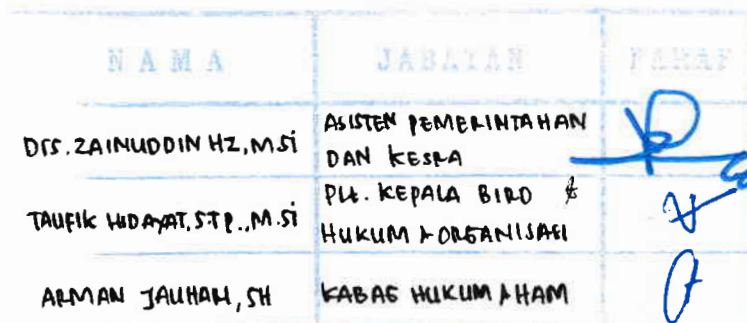 NAMA JABATAN PARAF
Drs. ZAINUDDIN HZ, M.Si ASISTEN PEMERINTAHAN
DAN KESRA
TAUFIK HIDAYAT, STP., M.Si Plt. KEPALA BIRO &
HUKUM & ORGANISASI
ARMAN JAUHARI, SH KABAG HUKUM & HAM